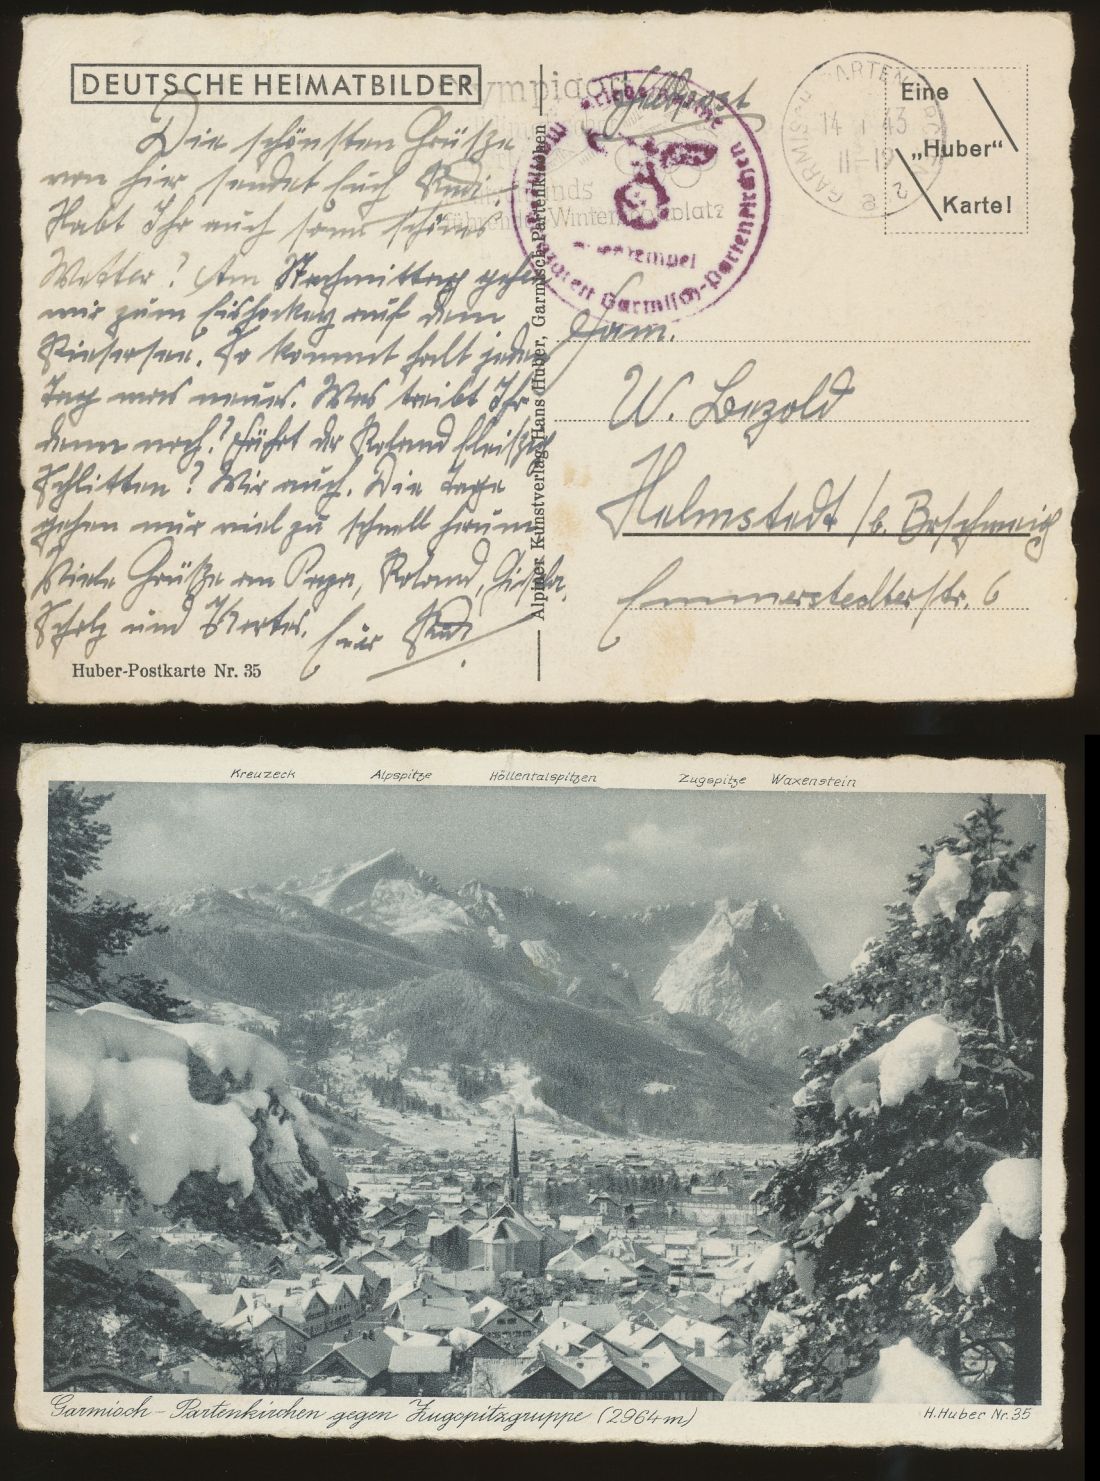 DEUTSCHE HEIMATBILDER
Feldpost
Die schönsten Grüße
von hier sendet Euch Rudi.
Habt Ihr auch schönes
Wetter? Am Nachmittag gehen
wir zum Eishockey auf dem
Riessersee. So kommt halt jeden
Tag was neues. Was treibt Ihr
denn noch? Fährt der Roland fleißig
Schlitten? Wir auch. Die Tage
gehen nur viel zu schnell herum
Viele Grüße an Papa, Roland, Gisela,
und
Euer Rudi
Huber-Postkarte Nr. 35
Alpiner Kunstverlag Hans Huber, Garmisch-Partenkirchen
Olympiaort
Wintersportplatz
Kriegsmarine
Marine
Garmisch-Partenkirchen
GARMISCH-PARTENKIRCHEN
14 43
11-12
2
Eine
„Huber“
Karte!
Fam.
W. Bezold
Helmstedt /b. Brschweig
Emmerstedterstr. 6
Kreuzeck Alpspitze Höllentalspitzen Zugspitze Waxenstein
Garmisch-Partenkirchen gegen Zugspitzgruppe (2964m)
H.Huber Nr.35